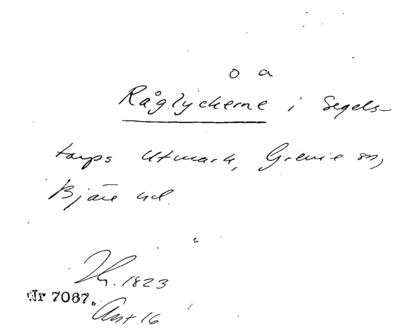 o a
Råglyckerne i Segels-
torps Utmark, Grevie sn,
Bjäre hd.
Lh. 1823
Nr 7067.
Akt 16